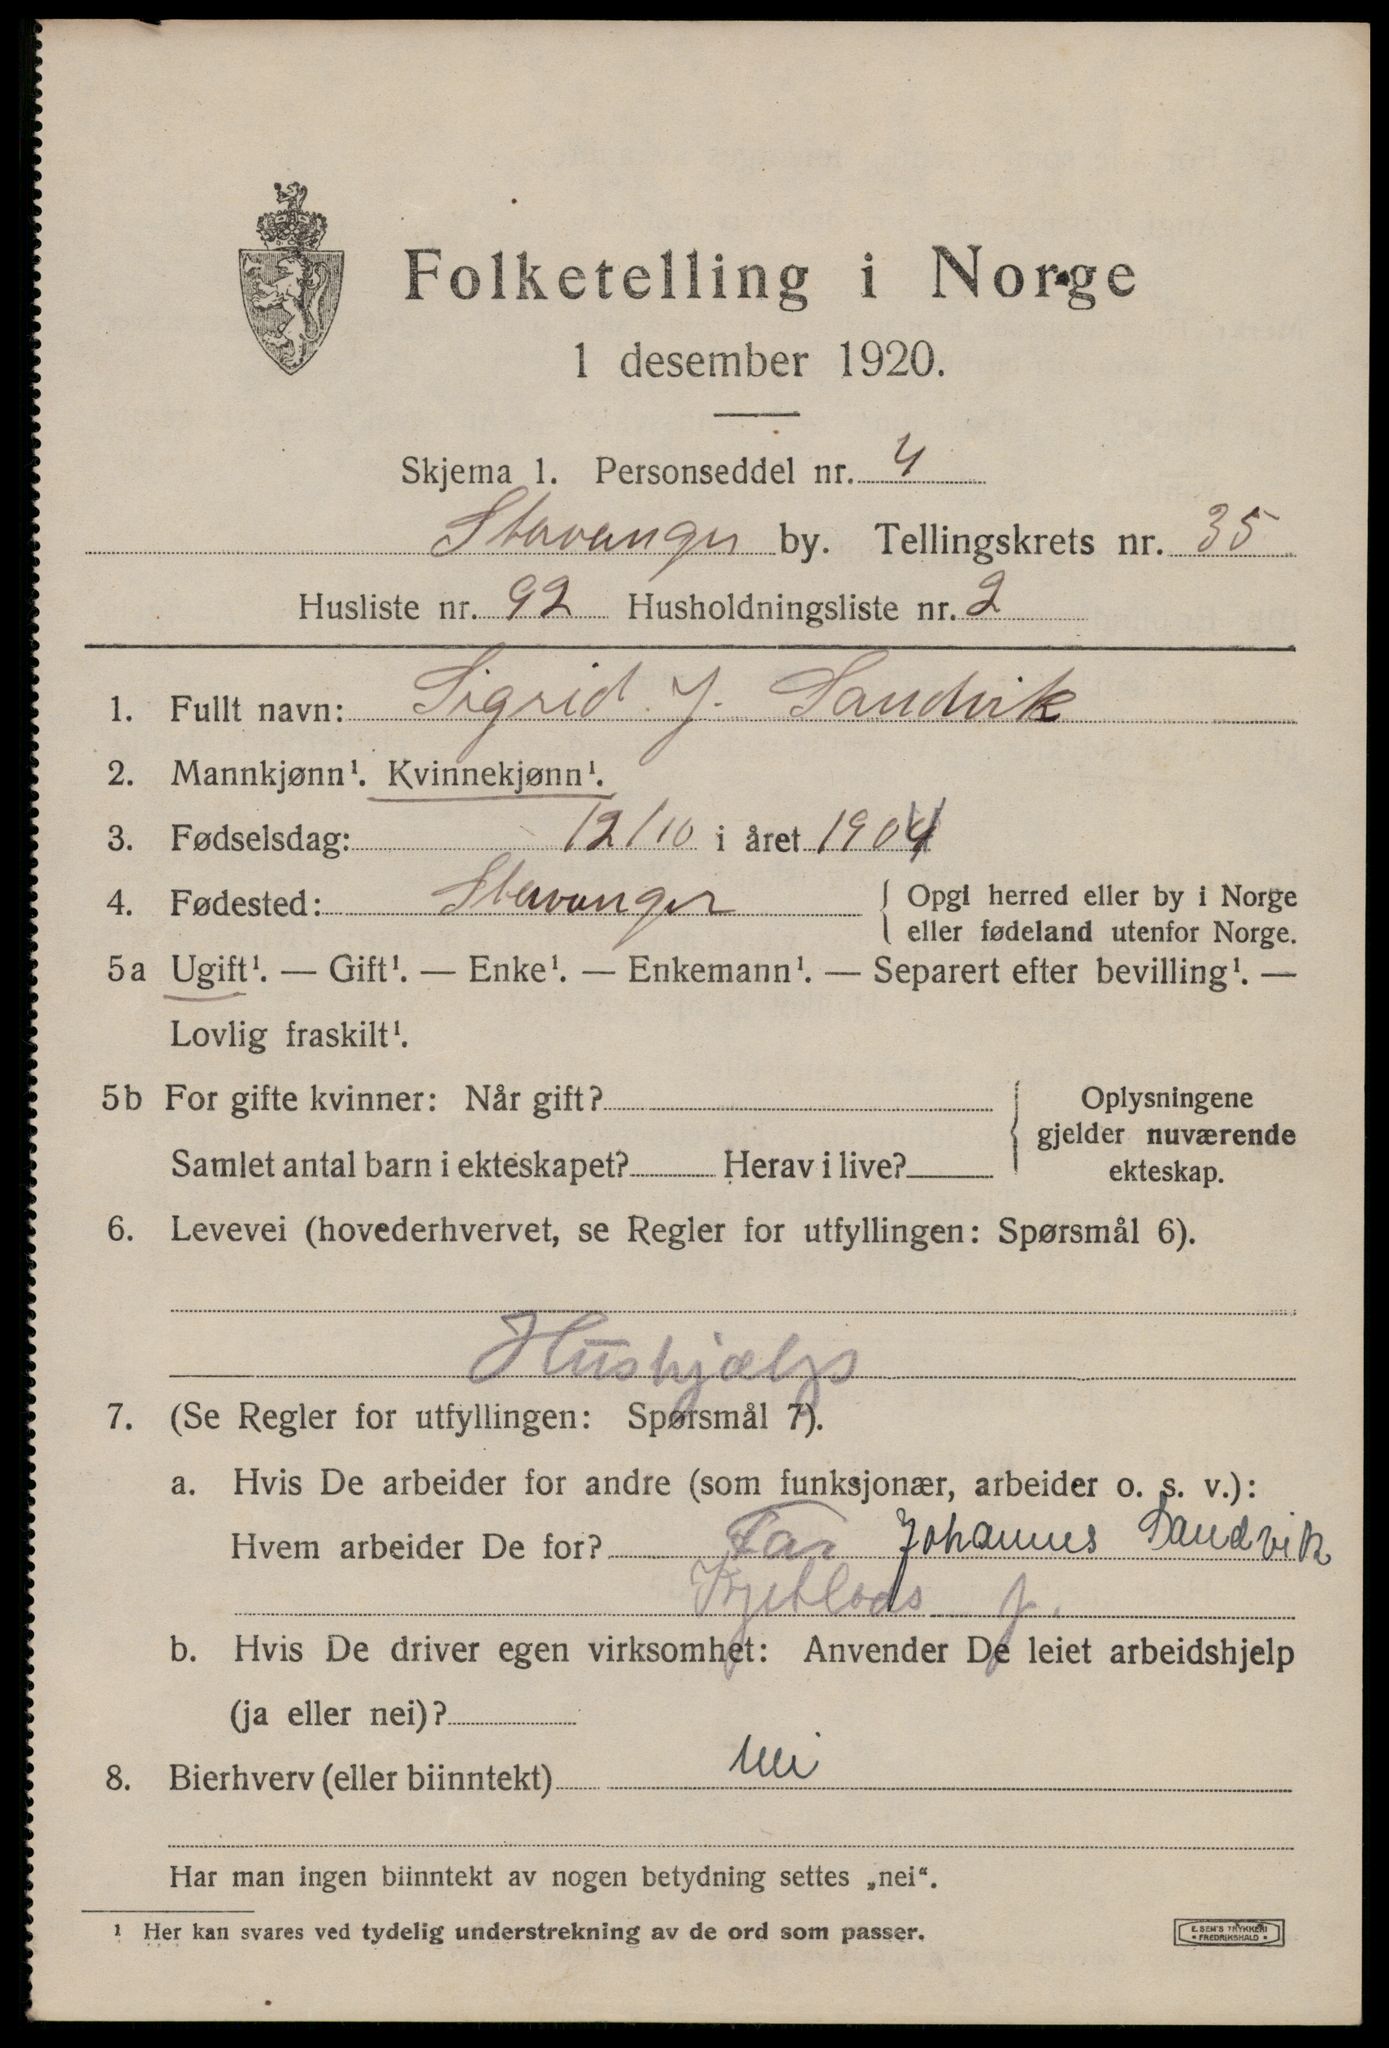 Folketelling i Norge
1 desember 1920.
Skjema 1. Personseddel nr. 4
Stavanger by. Tellingskrets nr. 35
Husliste nr. 92 Husholdningsliste nr. 2
1. Fullt navn: Sigrid J. Sandvik
2. Mannkjønn¹. Kvinnekjønn¹.
3. Fødselsdag: 12/10 i året 1904
4. Fødested: Stavanger { Opgi herred eller by i Norge
eller fødeland utenfor Norge.
5a Ugift¹. — Gift¹. — Enke¹. — Enkemann¹. — Separert efter bevilling¹. —
Lovlig fraskilt¹.
5b For gifte kvinner: Når gift? { Oplysningene
gjelder nuværende
Samlet antal barn i ekteskapet? Herav i live? ekteskap.
6. Levevei (hovederhvervet, se Regler for utfyllingen: Spørsmål 6).
Hushjælp
7. (Se Regler for utfyllingen: Spørsmål 7).
a. Hvis De arbeider for andre (som funksjonær, arbeider o. s. v.):
Hvem arbeider De for? Far Johannes Sandvik
b. Hvis De driver egen virksomhet: Anvender De leiet arbeidshjelp
(ja eller nei)?
8. Bierhverv (eller biinntekt) nei
Har man ingen biinntekt av nogen betydning settes „nei“.
¹ Her kan svares ved tydelig understrekning av de ord som passer.
E. SEM'S TRYKKERI
• FREDRIKSHALD •